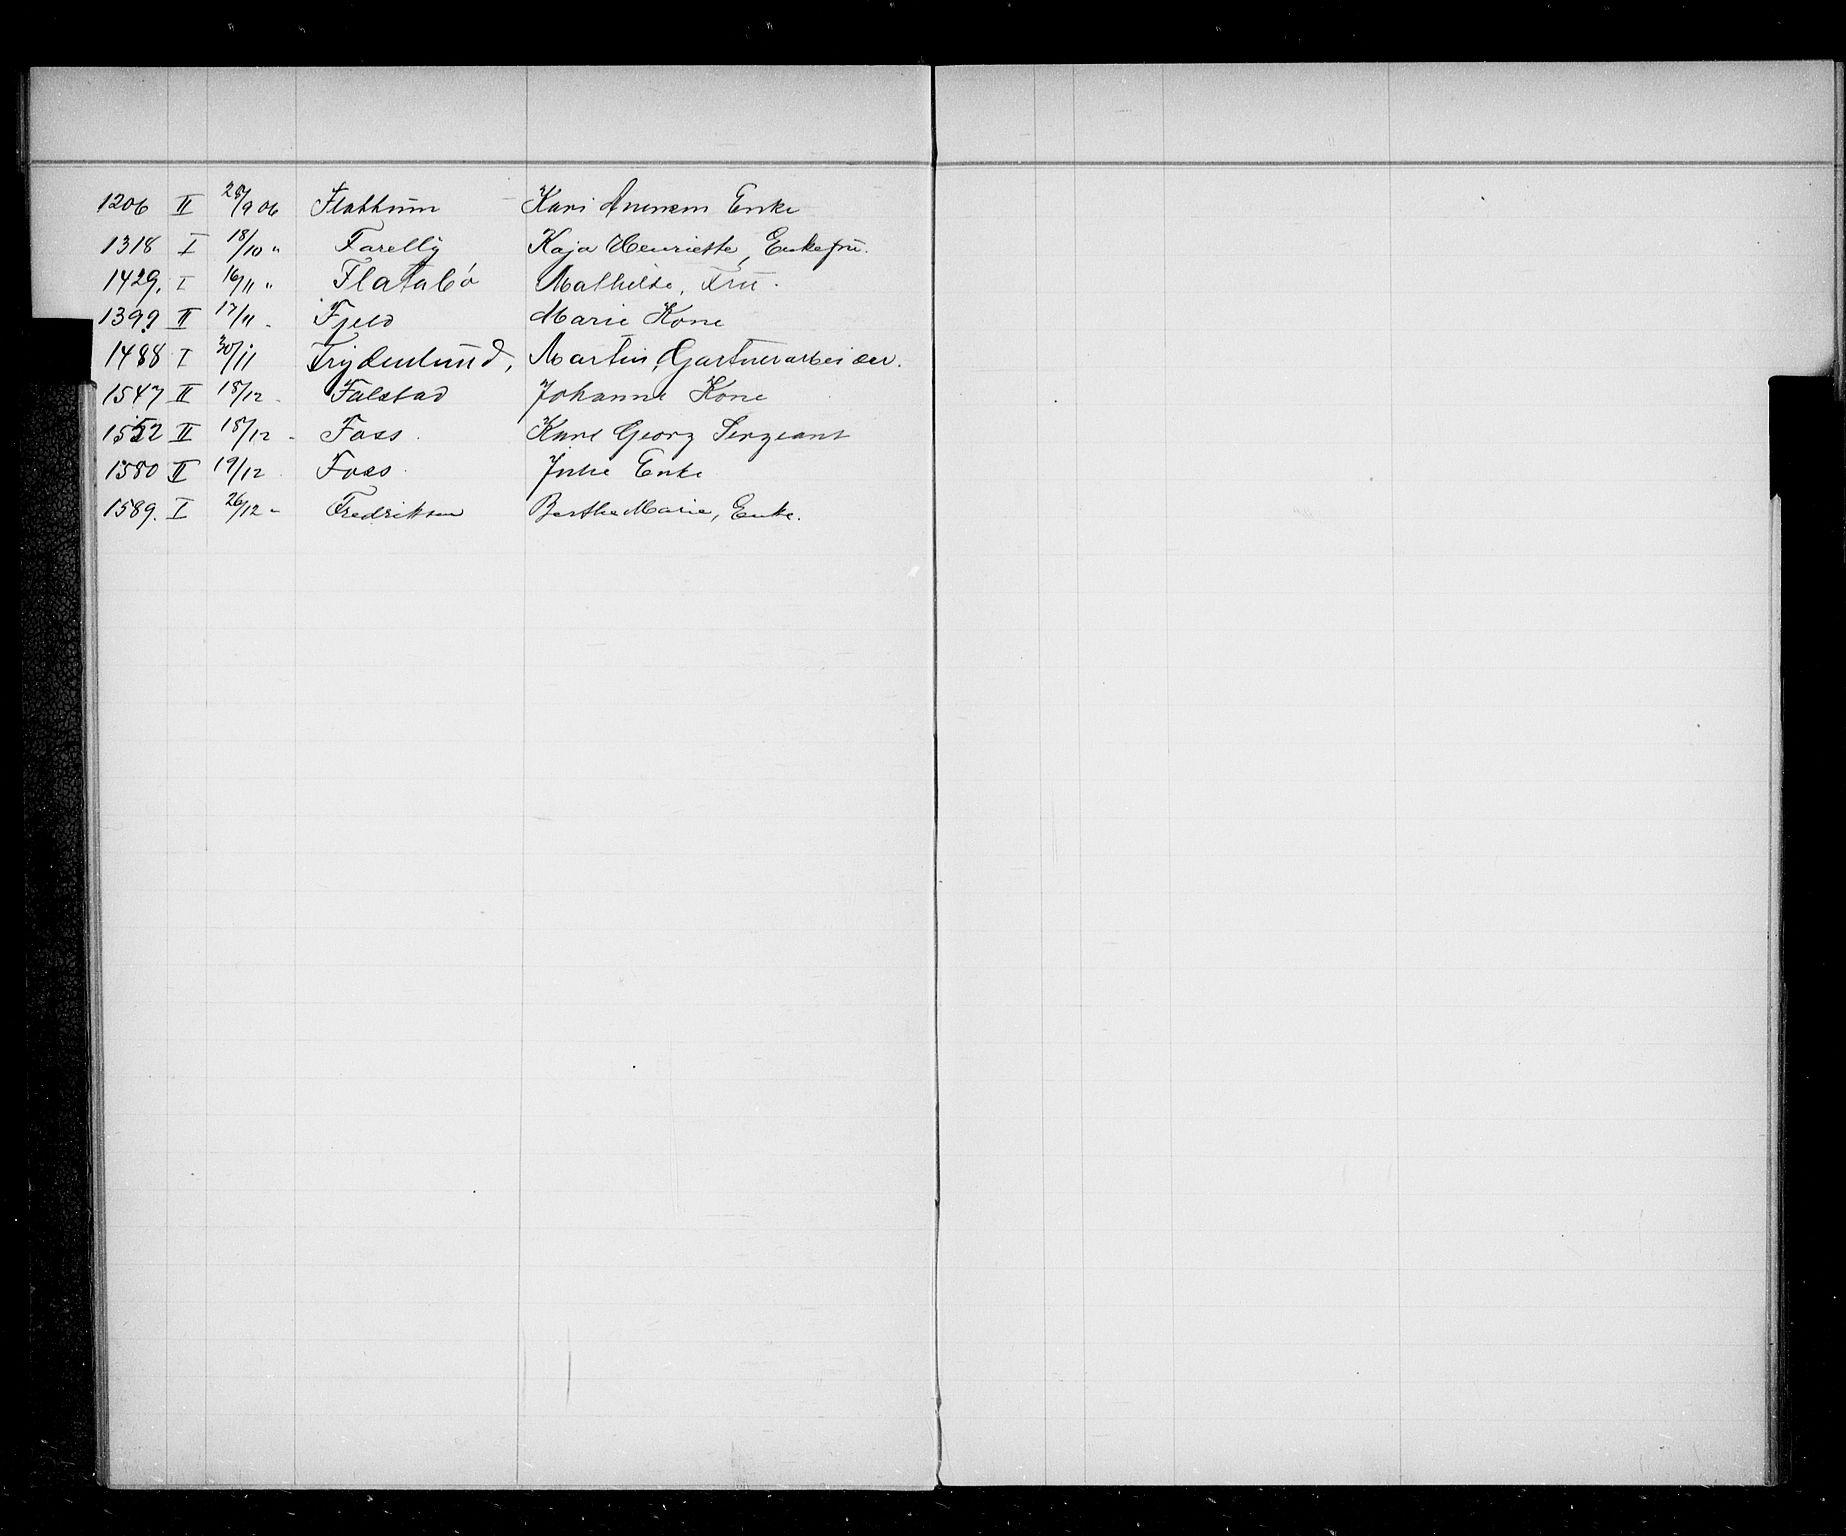 1206 II 28/9 06 Flathum Kari Enke
1318 I 18/10 " Farelly Kaja Henriette, Enkefru.
1429. I 16/11 " Flatabø Mathilde, Fru.
1399 II 17/11 - Fjeld Marie Kone
1488 I 30/11 Frydenlund, Martin, Gartnerarbeider.
1547 II 18/12 - Falstad Johanne Kone
1552 II 18/12 - Foss. Karl Georg Sergeant
1580 II 19/12 Foss. Julie Enke
1589. I 26/12 - Fredriksen Berthe Marie, Enke.